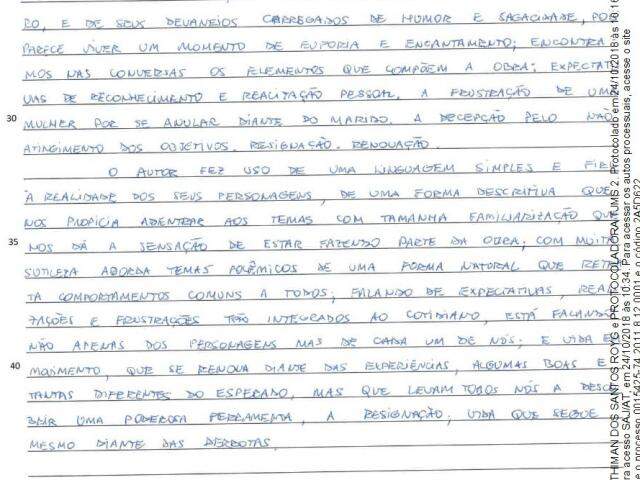 RO, E DE SEUS DEVANEIOS CARREGADOS DE HUMOR E SAGACIDADE, POR
PARECE VIVER UM MOMENTO DE EUFORIA E ENCANTAMENTO; ENCONTRA
MOS NAS CONVERSAS OS ELEMENTOS QUE COMPÕEM A OBRA: EXPECTAT
VAS DE RECONHECIMENTO E REALIZAÇÃO PESSOAL. A FRUSTRAÇÃO DE UMA
30 MULHER POR SE ANULAR DIANTE DO MARIDO. A DECEPÇÃO PELO NÃO
ATINGIMENTO DOS OBJETIVOS. RESIGNAÇÃO. RENOVAÇÃO.
O AUTOR FEZ USO DE UMA LINGUAGEM SIMPLES E FIEL
À REALIDADE DOS SEUS PERSONAGENS, DE UMA FORMA DESCRITIVA QUE
NOS PROPICIA ADENTRAR AOS TEMAS COM TAMANHA FAMILIARIZAÇÃO QUE
35 NOS DÁ A SENSAÇÃO DE ESTAR FAZENDO PARTE DA OBRA; COM MUITA
SUTILEZA ABORDA TEMAS POLÊMICOS DE UMA FORMA NATURAL QUE RETRA
TA COMPORTAMENTOS COMUNS A TODOS; FALANDO DE EXPECTATIVAS, REALI
ZAÇÕES E FRUSTRAÇÕES TÃO INTEGRADOS AO COTIDIANO, ESTÁ FALANDO
NÃO APENAS DOS PERSONAGENS MAS DE CADA UM DE NÓS; E VIDA E
40 MOVIMENTO, QUE SE RENOVA DIANTE DAS EXPERIÊNCIAS, ALGUMAS BOAS E
TANTAS DIFERENTES DO ESPERADO, MAS QUE LEVAM TODOS NÓS A DESCO
BRIR UMA PODEROSA FERRAMENTA, A RESIGNAÇÃO; VIDA QUE SEGUE
MESMO DIANTE DAS DERROTAS.
THIMAN DOS SANTOS ROYG e PROTOCOLADORA TJMS 2. Protocolado em 24/10/2018 às 10:16
ra acesso SAJ/AT, em 24/10/2018 às 10:34. Para acessar os autos processuais, acesse o site
e o processo 0015475-74.2011.8.12.0001 e o código 2A5D622.